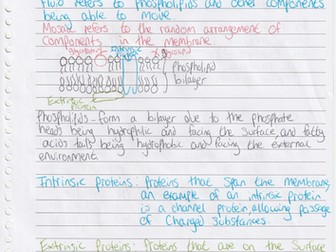 Fluid refers to phospholipids and other components
being able to move.
Mosaic refers to the random arrangement of
Components in the membrane
Intrinsic
phospholipid
bilayer
Extrinsic
protein
Phospholipids - Form a bilayer due to the phosphate
heads being hydrophilic and facing the surface and fatty
acids tails being hydrophobic and facing the external
environment
Intrinsic proteins: Proteins that span the membrane
an example of an intrinsic protein
is a channel protein, allowing passage
of charged substances
Extrinsic proteins: Proteins that are on the surface